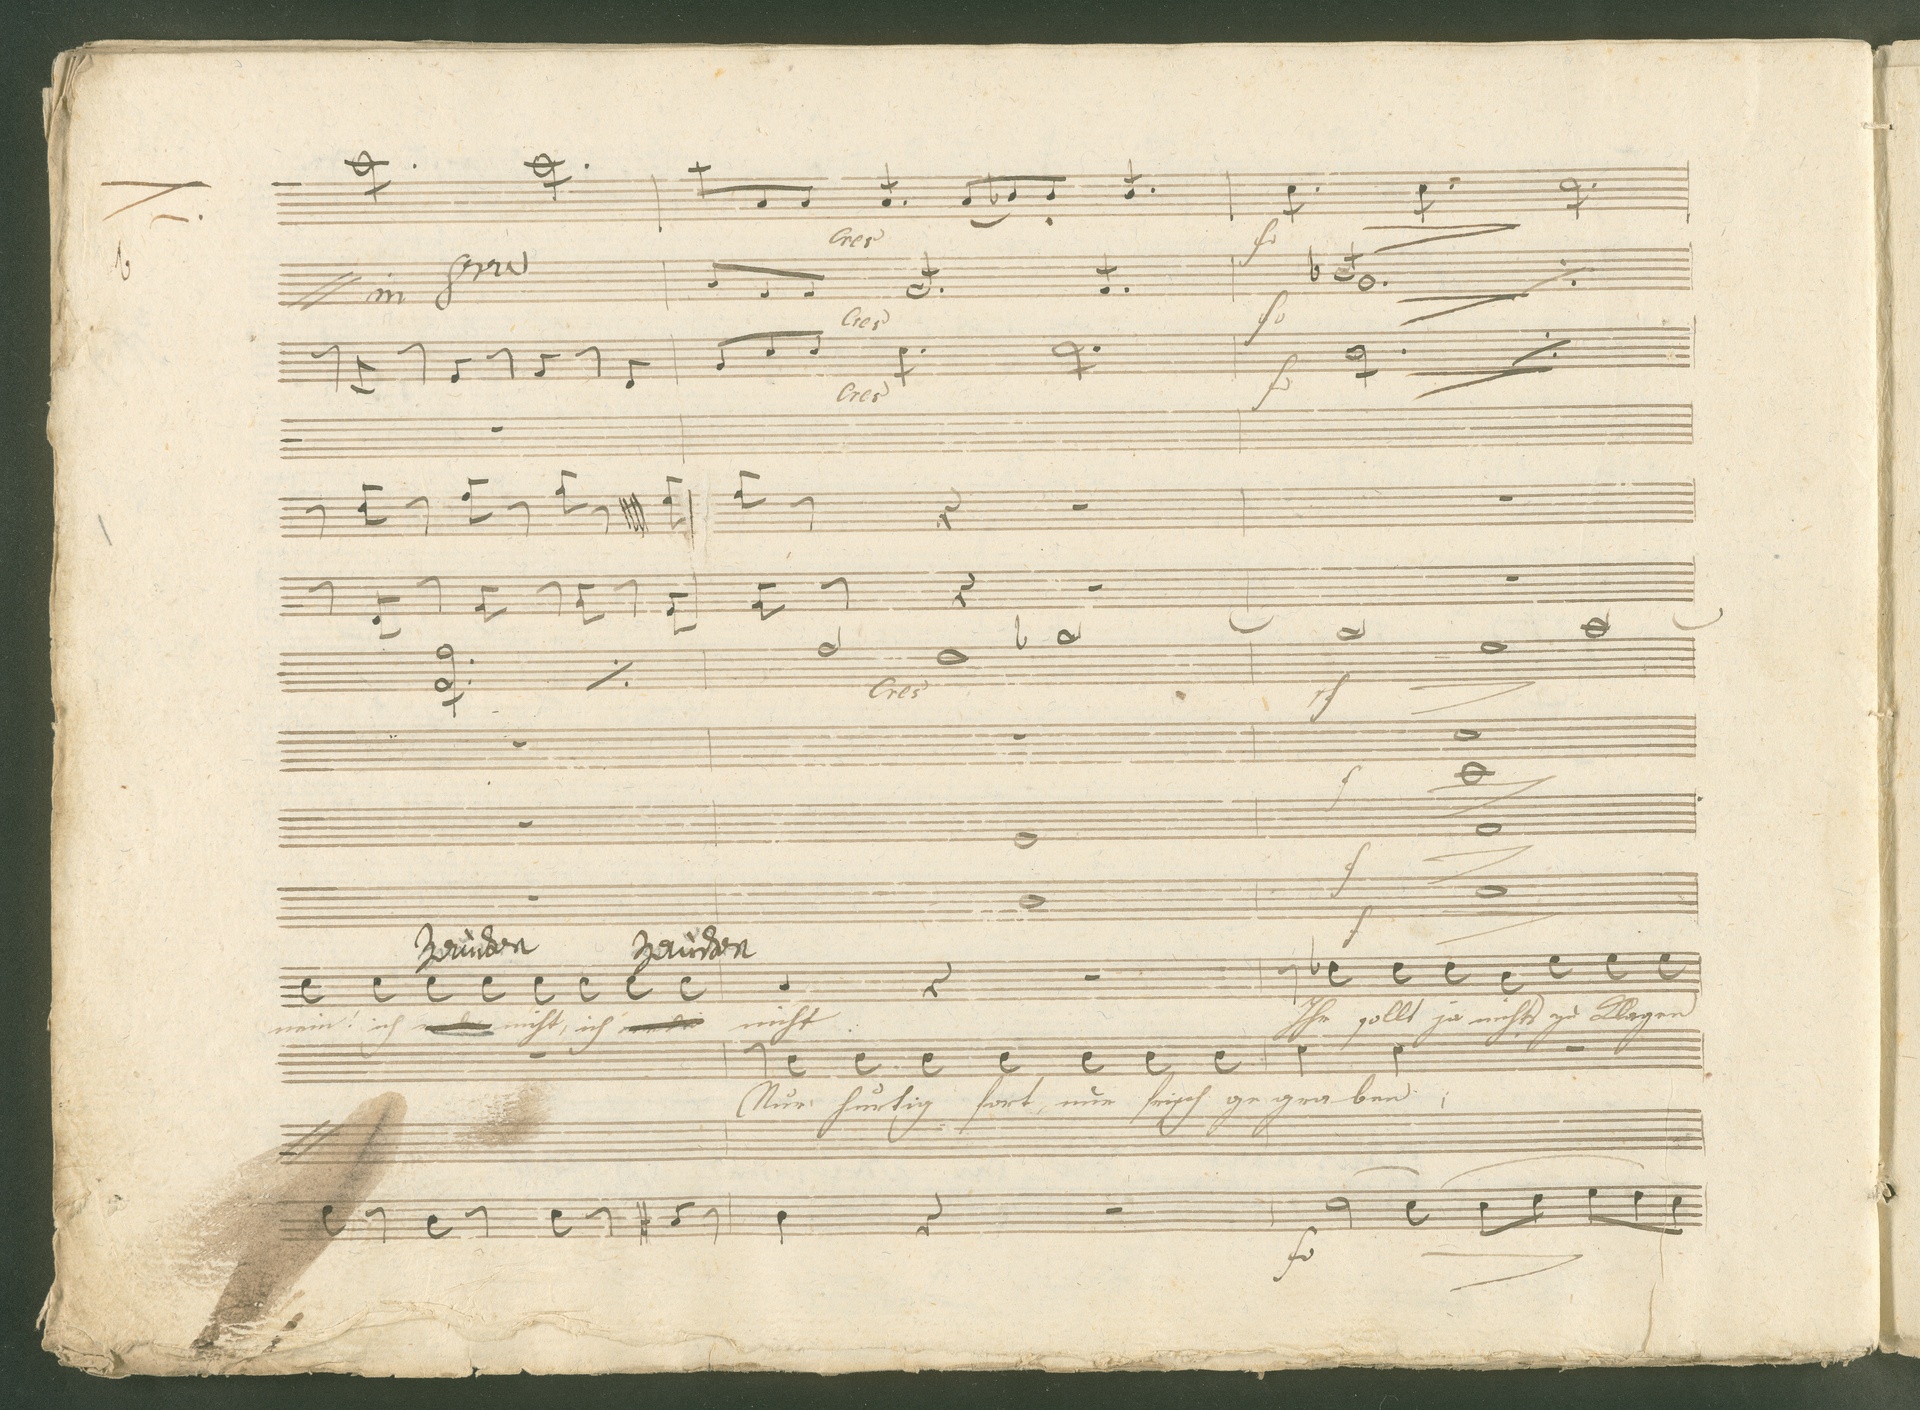 Cres
fo
in
Cres
fo
Cres
fo
Cres
sf
f
f
f
zaudern zaudern
nein! ich nicht, ich nicht. Ihr sollt ja nichts zu Klagen
Nur hurtig fort, nur frisch gegraben;
fo